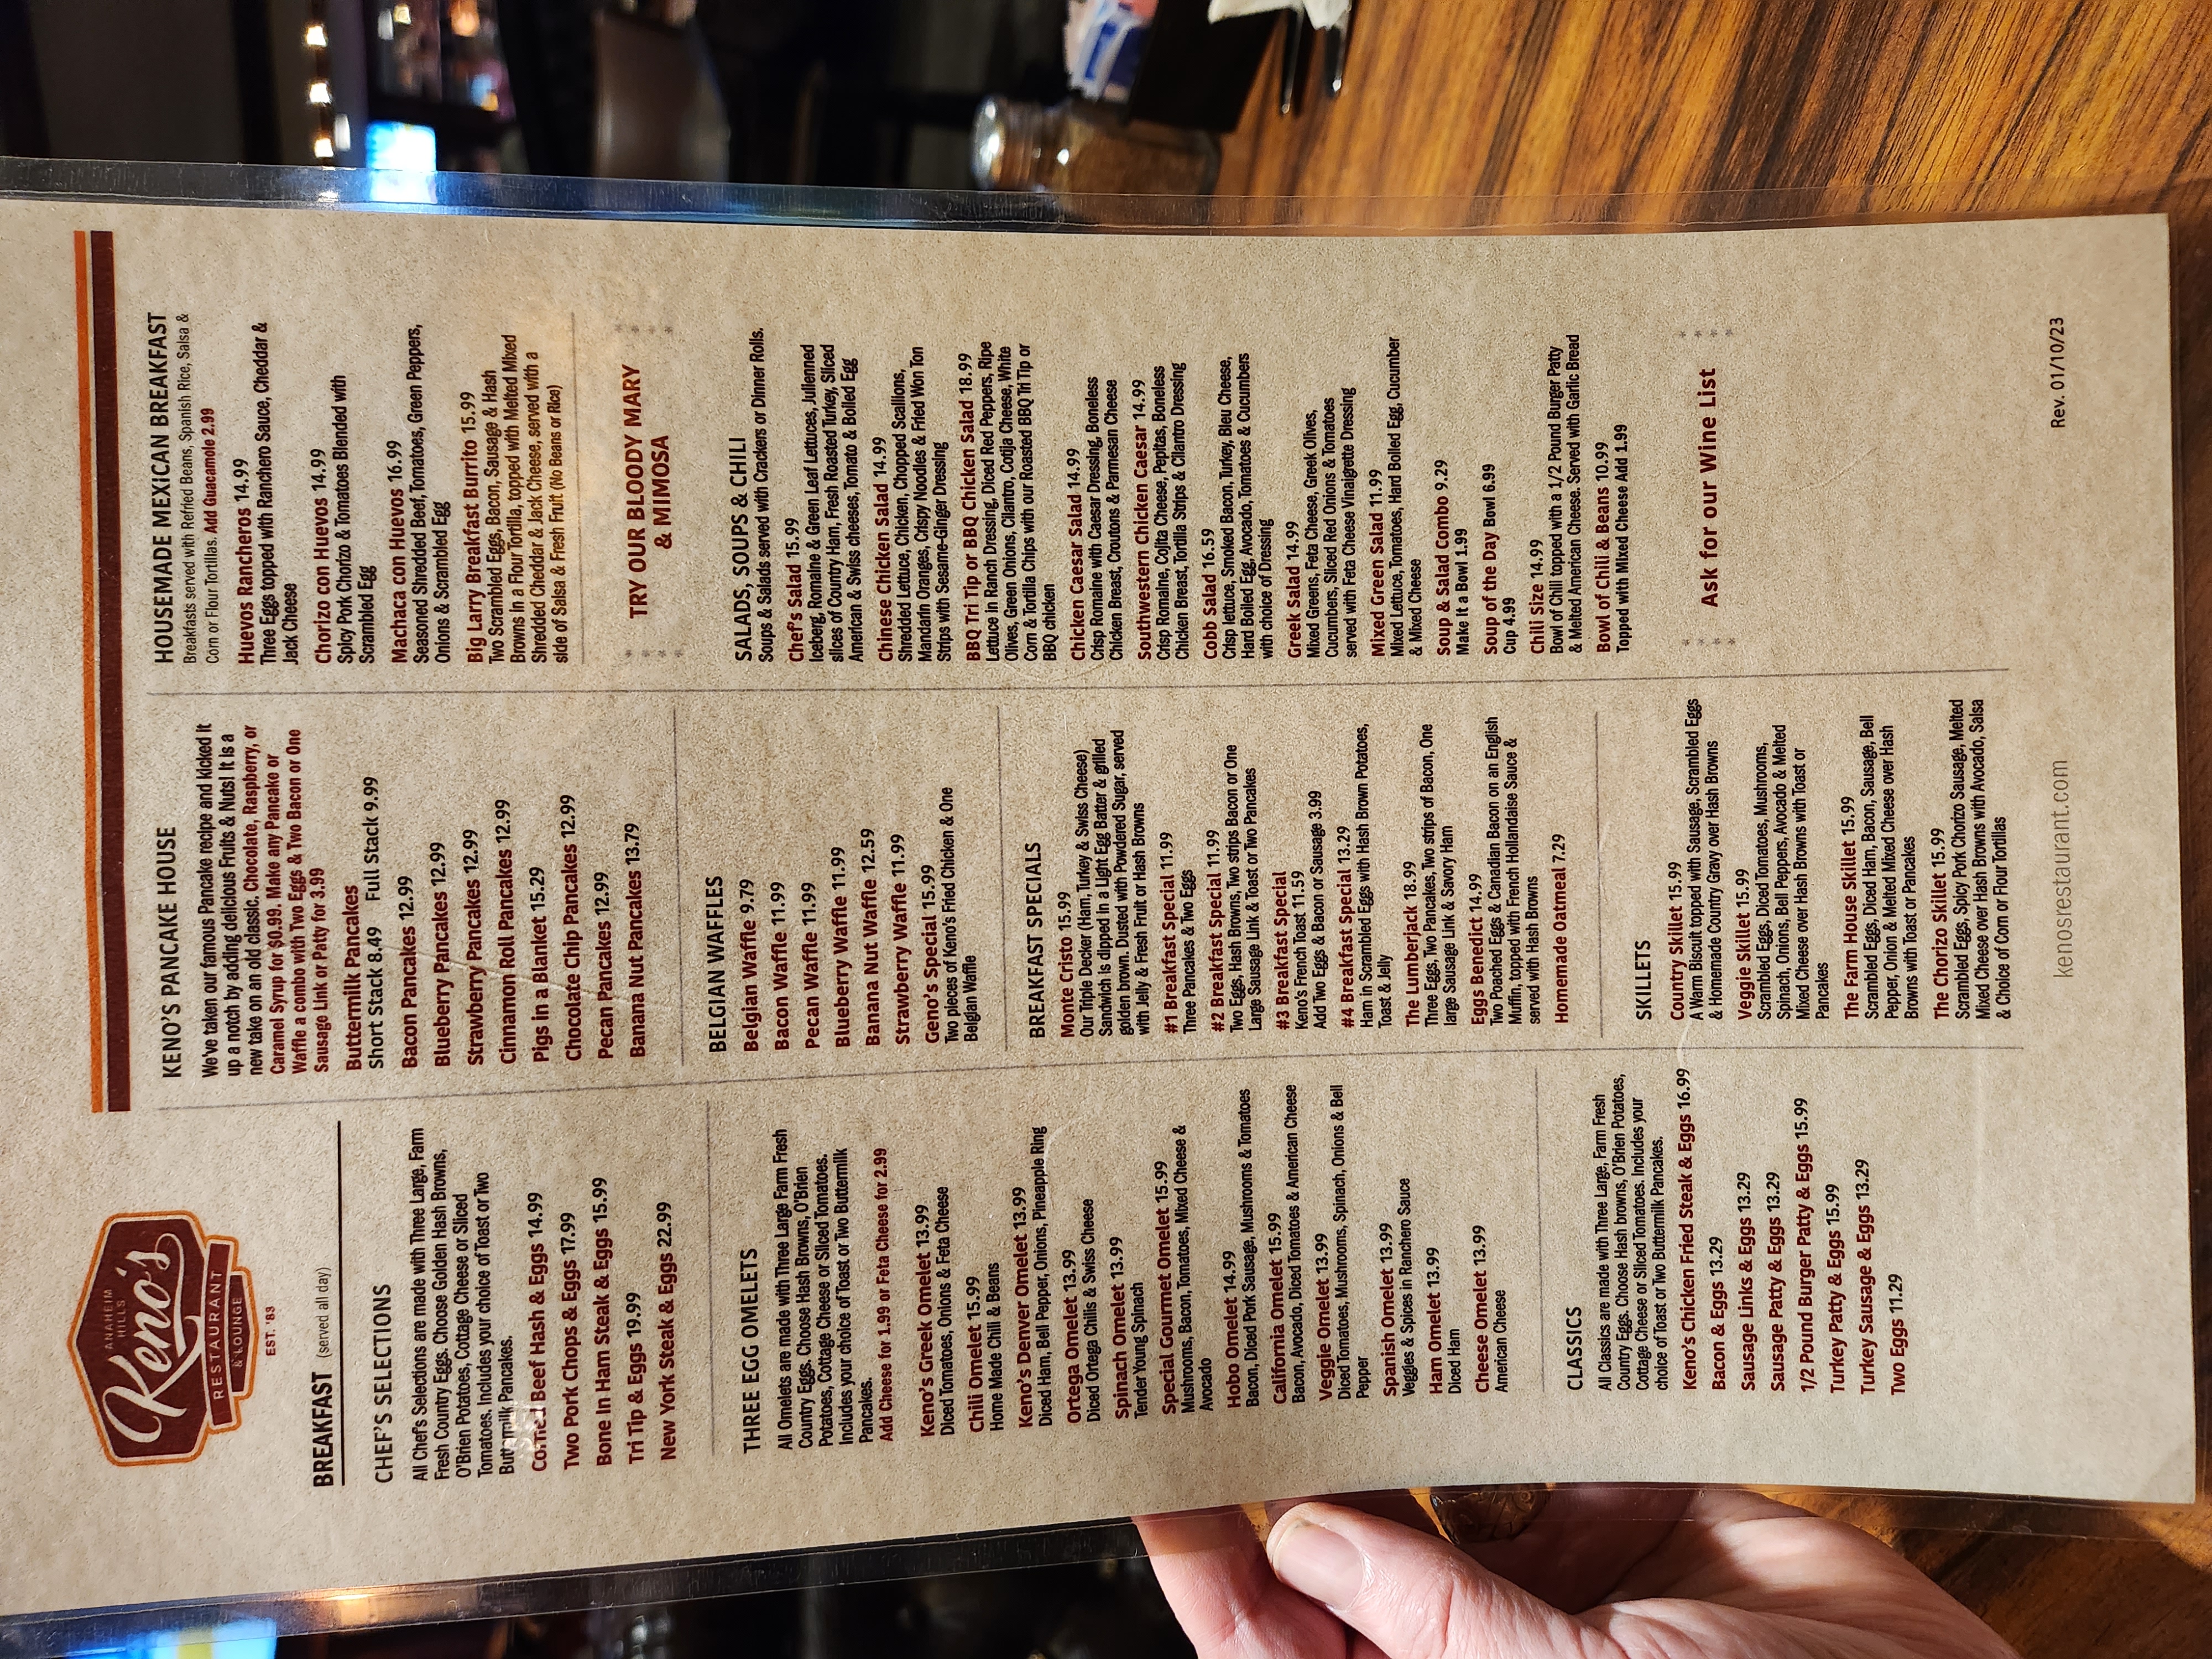 ANAHEIM
HILLS
Keno's
RESTAURANT
& LOUNGE
EST. '83
BREAKFAST (served all day)
CHEF'S SELECTIONS
All Chef's Selections are made with Three Large, Farm
Fresh Country Eggs. Choose Golden Hash Browns,
O'Brien Potatoes, Cottage Cheese or Sliced
Tomatoes. Includes your choice of Toast or Two
Buttermilk Pancakes.
Corned Beef Hash & Eggs 14.99
Two Pork Chops & Eggs 17.99
Bone In Ham Steak & Eggs 15.99
Tri Tip & Eggs 19.99
New York Steak & Eggs 22.99
THREE EGG OMELETS
All Omelets are made with Three Large Farm Fresh
Country Eggs. Choose Hash Browns, O'Brien
Potatoes, Cottage Cheese or Sliced Tomatoes.
Includes your choice of Toast or Two Buttermilk
Pancakes.
Add Cheese for 1.99 or Feta Cheese for 2.99
Keno's Greek Omelet 13.99
Diced Tomatoes, Onions & Feta Cheese
Chili Omelet 15.99
Home Made Chili & Beans
Keno's Denver Omelet 13.99
Diced Ham, Bell Pepper, Onions, Pineapple Ring
Ortega Omelet 13.99
Diced Ortega Chilis & Swiss Cheese
Spinach Omelet 13.99
Tender Young Spinach
Special Gourmet Omelet 15.99
Mushrooms, Bacon, Tomatoes, Mixed Cheese &
Avocado
Hobo Omelet 14.99
Bacon, Diced Pork Sausage, Mushrooms & Tomatoes
California Omelet 15.99
Bacon, Avocado, Diced Tomatoes & American Cheese
Veggie Omelet 13.99
Diced Tomatoes, Mushrooms, Spinach, Onions & Bell
Pepper
Spanish Omelet 13.99
Veggies & Spices in Ranchero Sauce
Ham Omelet 13.99
Diced Ham
Cheese Omelet 13.99
American Cheese
CLASSICS
All Classics are made with Three Large, Farm Fresh
Country Eggs. Choose Hash browns, O'Brien Potatoes,
Cottage Cheese or Sliced Tomatoes. Includes your
choice of Toast or Two Buttermilk Pancakes.
Keno's Chicken Fried Steak & Eggs 16.99
Bacon & Eggs 13.29
Sausage Links & Eggs 13.29
Sausage Patty & Eggs 13.29
1/2 Pound Burger Patty & Eggs 15.99
Turkey Patty & Eggs 15.99
Turkey Sausage & Eggs 13.29
Two Eggs 11.29
KENO'S PANCAKE HOUSE
We've taken our famous Pancake recipe and kicked it
up a notch by adding delicious Fruits & Nuts! It is a
new take on an old classic. Chocolate, Raspberry, or
Caramel Syrup for $0.99. Make any Pancake or
Waffle a combo with Two Eggs & Two Bacon or One
Sausage Link or Patty for 3.99
Buttermilk Pancakes
Short Stack 8.49 Full Stack 9.99
Bacon Pancakes 12.99
Blueberry Pancakes 12.99
Strawberry Pancakes 12.99
Cinnamon Roll Pancakes 12.99
Pigs in a Blanket 15.29
Chocolate Chip Pancakes 12.99
Pecan Pancakes 12.99
Banana Nut Pancakes 13.79
BELGIAN WAFFLES
Belgian Waffle 9.79
Bacon Waffle 11.99
Pecan Waffle 11.99
Blueberry Waffle 11.99
Banana Nut Waffle 12.59
Strawberry Waffle 11.99
Geno's Special 15.99
Two pieces of Keno's Fried Chicken & One
Belgian Waffle
BREAKFAST SPECIALS
Monte Cristo 15.99
Our Triple Decker (Ham, Turkey & Swiss Cheese)
Sandwich is dipped in a Light Egg Batter & grilled
golden brown. Dusted with Powdered Sugar, served
with Jelly & Fresh Fruit or Hash Browns
#1 Breakfast Special 11.99
Three Pancakes & Two Eggs
#2 Breakfast Special 11.99
Two Eggs, Hash Browns, Two strips Bacon or One
Large Sausage Link & Toast or Two Pancakes
#3 Breakfast Special
Keno's French Toast 11.59
Add Two Eggs & Bacon or Sausage 3.99
#4 Breakfast Special 13.29
Ham in Scrambled Eggs with Hash Brown Potatoes,
Toast & Jelly
The Lumberjack 18.99
Three Eggs, Two Pancakes, Two strips of Bacon, One
large Sausage Link & Savory Ham
Eggs Benedict 14.99
Two Poached Eggs & Canadian Bacon on an English
Muffin, topped with French Hollandaise Sauce &
served with Hash Browns
Homemade Oatmeal 7.29
SKILLETS
Country Skillet 15.99
A Warm Biscuit topped with Sausage, Scrambled Eggs
& Homemade Country Gravy over Hash Browns
Veggie Skillet 15.99
Scrambled Eggs, Diced Tomatoes, Mushrooms,
Spinach, Onions, Bell Peppers, Avocado & Melted
Mixed Cheese over Hash Browns with Toast or
Pancakes
The Farm House Skillet 15.99
Scrambled Eggs, Diced Ham, Bacon, Sausage, Bell
Pepper, Onion & Melted Mixed Cheese over Hash
Browns with Toast or Pancakes
The Chorizo Skillet 15.99
Scrambled Eggs, Spicy Pork Chorizo Sausage, Melted
Mixed Cheese over Hash Browns with Avocado, Salsa
& Choice of Corn or Flour Tortillas
HOUSEMADE MEXICAN BREAKFAST
Breakfasts served with Refried Beans, Spanish Rice, Salsa &
Corn or Flour Tortillas. Add Guacamole 2.99
Huevos Rancheros 14.99
Three Eggs topped with Ranchero Sauce, Cheddar &
Jack Cheese
Chorizo con Huevos 14.99
Spicy Pork Chorizo & Tomatoes Blended with
Scrambled Egg
Machaca con Huevos 16.99
Seasoned Shredded Beef, Tomatoes, Green Peppers,
Onions & Scrambled Egg
Big Larry Breakfast Burrito 15.99
Two Scrambled Eggs, Bacon, Sausage & Hash
Browns In a Flour Tortilla, topped with Melted Mixed
Shredded Cheddar & Jack Cheese, served with a
side of Salsa & Fresh Fruit (No Beans or Rice)
TRY OUR BLOODY MARY
& MIMOSA
SALADS, SOUPS & CHILI
Soups & Salads served with Crackers or Dinner Rolls.
Chef's Salad 15.99
Iceberg, Romaine & Green Leaf Lettuces, Julienned
slices of Country Ham, Fresh Roasted Turkey, Sliced
American & Swiss cheeses, Tomato & Boiled Egg
Chinese Chicken Salad 14.99
Shredded Lettuce, Chicken, Chopped Scallions,
Mandarin Oranges, Crispy Noodles & Fried Won Ton
Strips with Sesame-Ginger Dressing
BBQ Tri Tip or BBQ Chicken Salad 18.99
Lettuce in Ranch Dressing, Diced Red Peppers, Ripe
Olives, Green Onions, Cilantro, Cotija Cheese, White
Corn & Tortilla Chips with our Roasted BBQ Tri Tip or
BBQ chicken
Chicken Caesar Salad 14.99
Crisp Romaine with Caesar Dressing, Boneless
Chicken Breast, Croutons & Parmesan Cheese
Southwestern Chicken Caesar 14.99
Crisp Romaine, Cojita Cheese, Pepitas, Boneless
Chicken Breast, Tortilla Strips & Cilantro Dressing
Cobb Salad 16.59
Crisp lettuce, Smoked Bacon, Turkey, Bleu Cheese,
Hard Boiled Egg, Avocado, Tomatoes & Cucumbers
with choice of Dressing
Greek Salad 14.99
Mixed Greens, Feta Cheese, Greek Olives,
Cucumbers, Sliced Red Onions & Tomatoes
served with Feta Cheese Vinaigrette Dressing
Mixed Green Salad 11.99
Mixed Lettuce, Tomatoes, Hard Boiled Egg, Cucumber
& Mixed Cheese
Soup & Salad Combo 9.29
Make It a Bowl 1.99
Soup of the Day Bowl 6.99
Cup 4.99
Chili Size 14.99
Bowl of Chili topped with a 1/2 Pound Burger Patty
& Melted American Cheese. Served with Garlic Bread
Bowl of Chili & Beans 10.99
Topped with Mixed Cheese Add 1.99
Ask for our Wine List
kenosrestaurant.com
Rev. 01/10/23